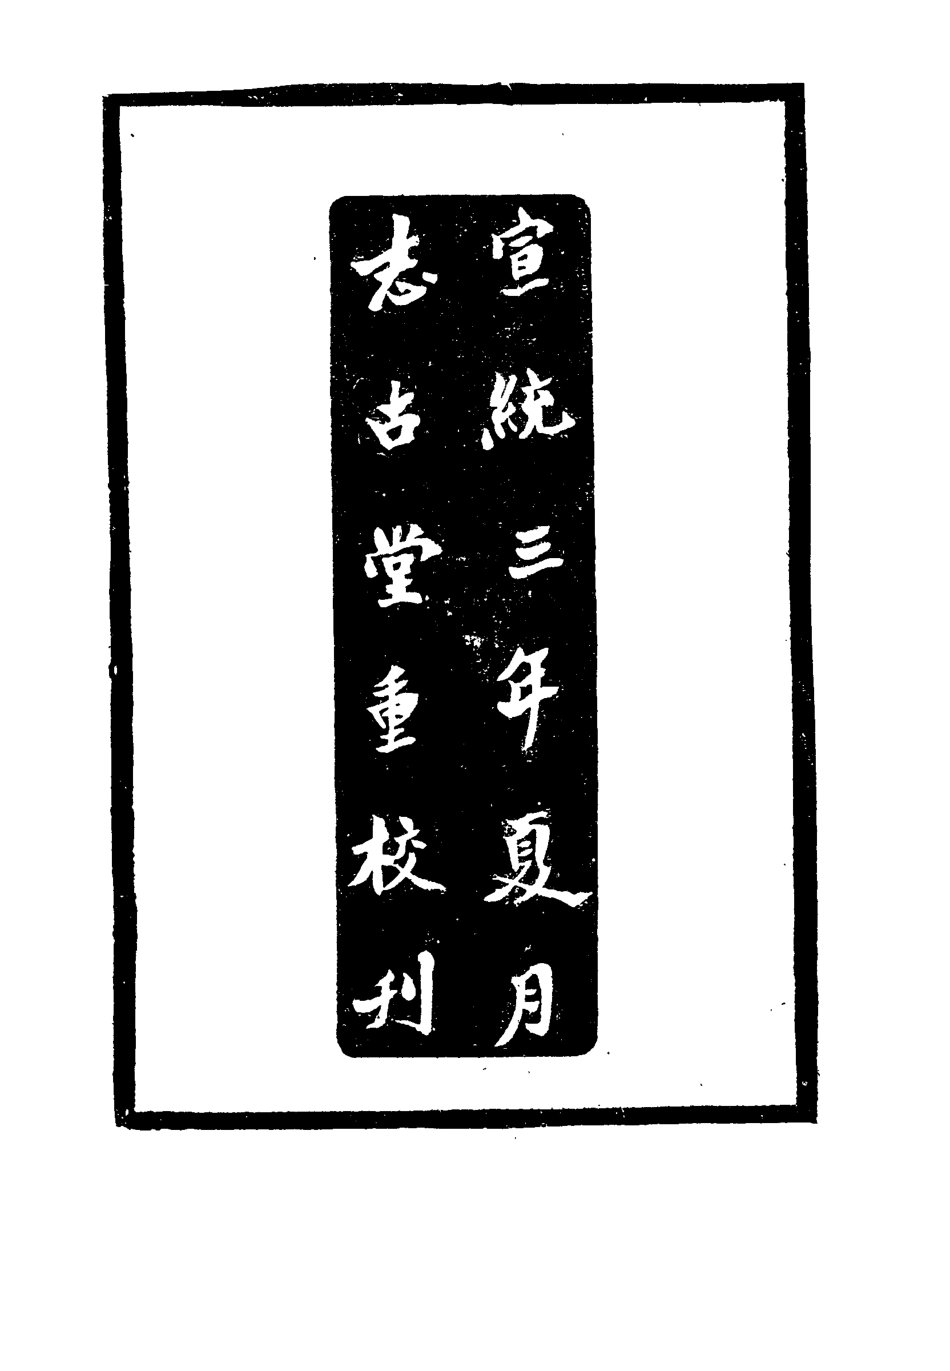 宣統三年夏月
志古堂重校刊